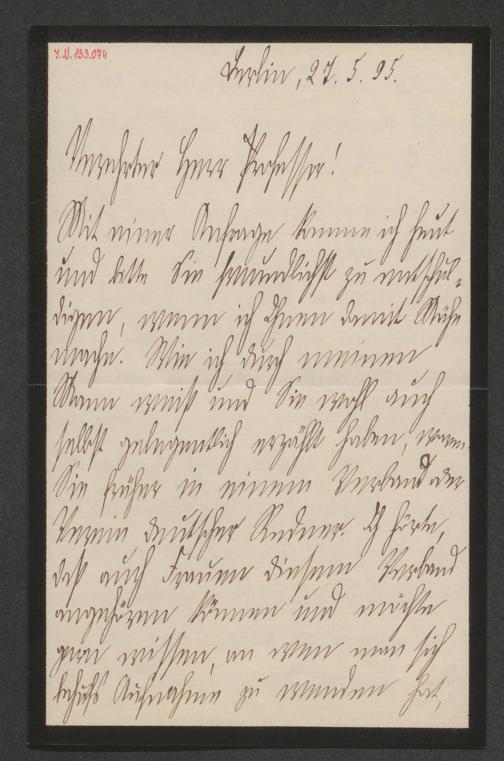 J.N. 133.074
Berlin, 27. 5. 95.
Verehrter Herr Professor!
Mit einer Anfrage komme ich heut
und bitte Sie freundlichst zu entschul-
digen, wenn ich Ihnen damit Mühe
mache. Wie ich durch meinen
Mann weiß und Sie wohl auch
selbst gelegentlich erzählt haben, waren
Sie früher in einem Verband oder
Verein deutscher Redner. Ich hörte,
daß auch Frauen diesem Verband
angehören können und möchte
gern wissen, an wen man sich
behufs Aufnahme zu wenden hat,